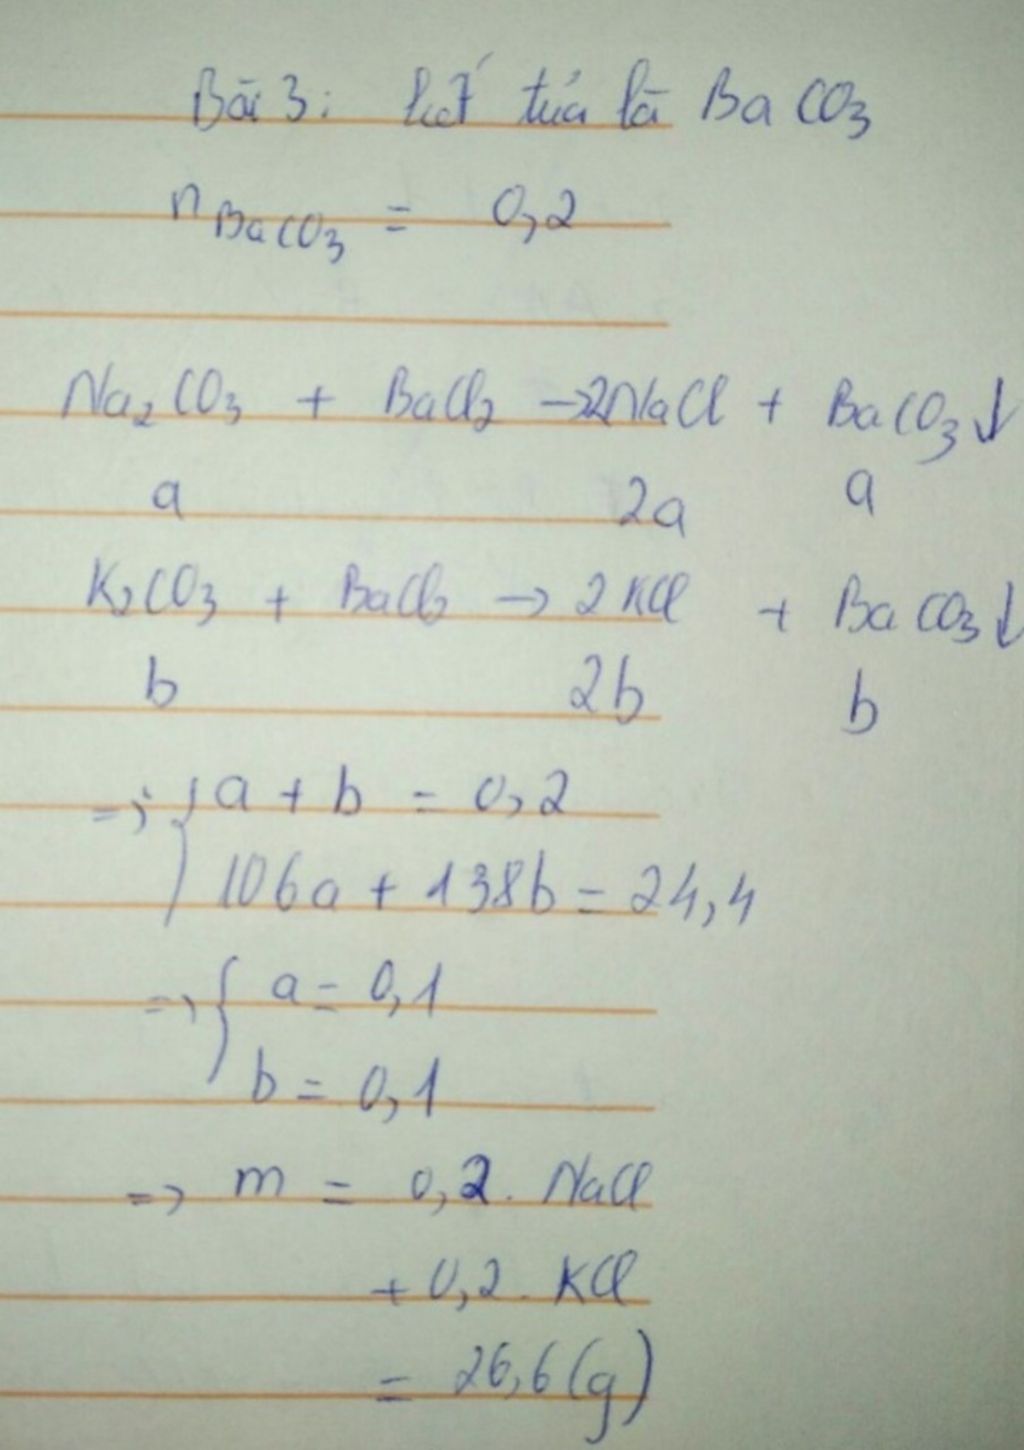 Bài 3: kết tủa là BaCO3
nBaCO3 = 0,2
Na2CO3 + BaCl2 →2NaCl + BaCO3↓
a 2a a
K2CO3 + BaCl2 → 2KCl + BaCO3↓
b 2b b
=> { a + b = 0,2
106a + 138b = 24,4
=> { a = 0,1
b = 0,1
=> m = 0,2. NaCl
+ 0,2. KCl
= 26,6(g)